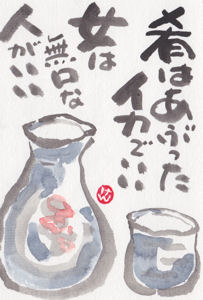 肴はあぶった
イカでいい
女は
無口な
人がいい
けん